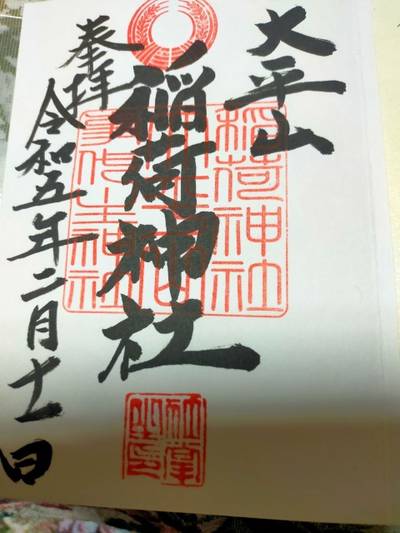 大平山
稲荷神社
奉拝
令和五年二月十一日
稲荷神社
社掌
之印